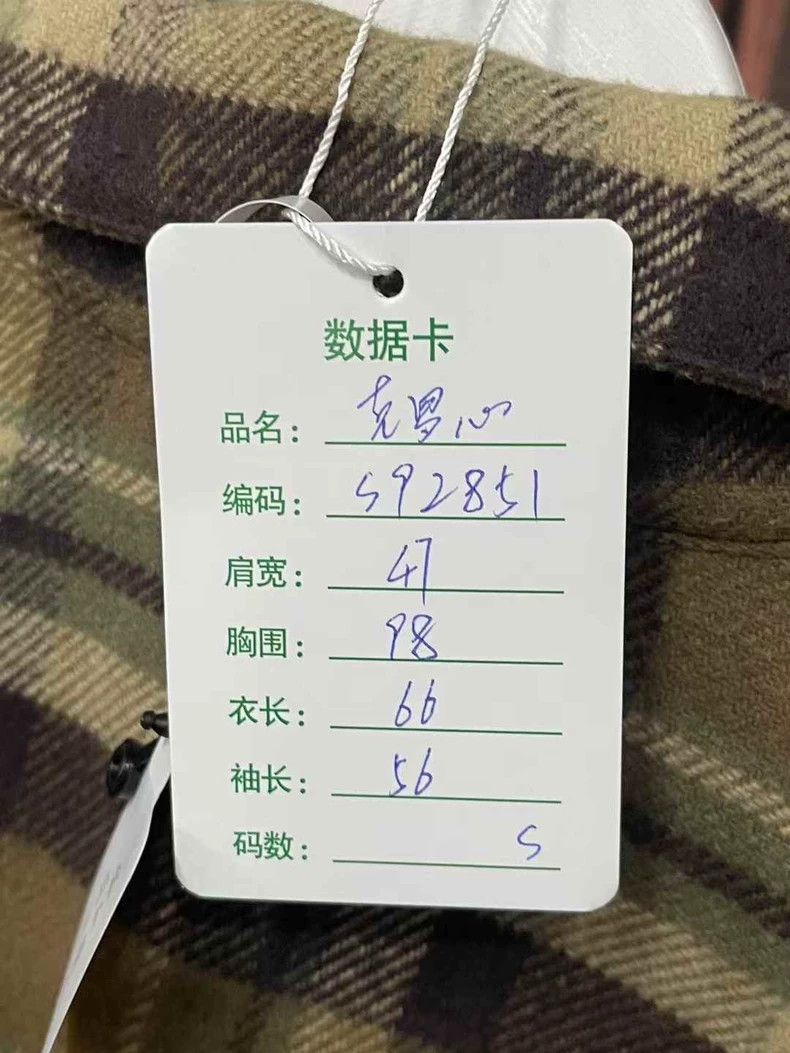 数据卡
品名：克罗心
编码：S92851
肩宽：47
胸围：98
衣长：66
袖长：56
码数：S